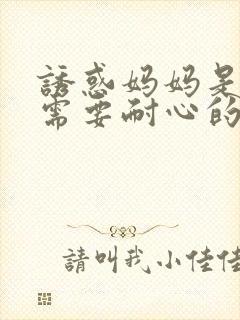 誘惑妈妈是
需要耐心的
請叫我小佳佳